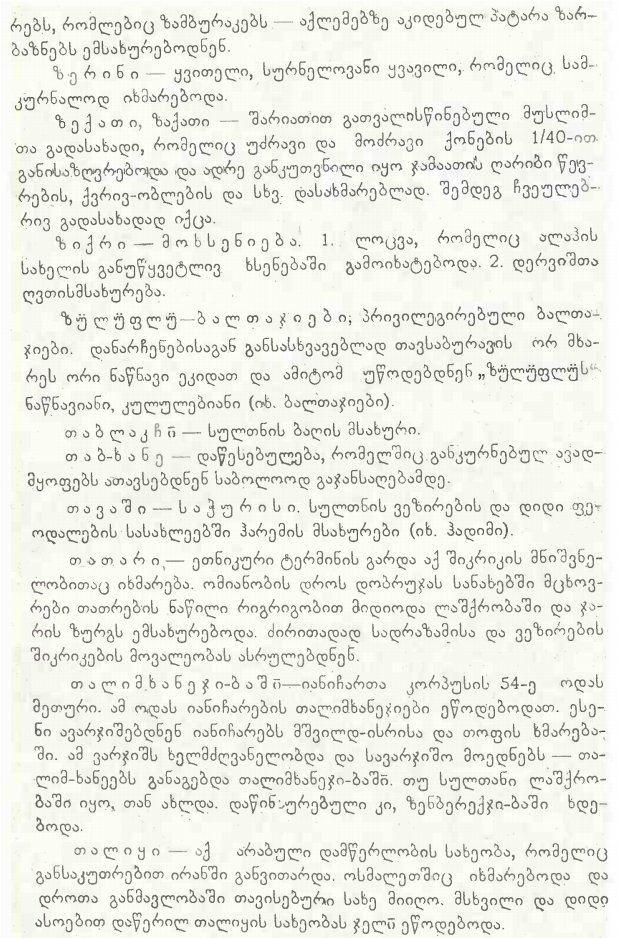 რებს, რომლებიც ზამბურაკებს — აქლემებზე აკიდებულ პატარა ზარ-
ბაზნებს ემსახურებოდნენ.
ზერინი — ყვითელი, სურნელოვანი ყვავილი, რომელიც სამ-
კურნალოდ იხმარებოდა.
ზექათი, ზაქათი — შარიათით გათვალისწინებული მუსლიმ-
თა გადასახადი, რომელიც უძრავი და მოძრავი ქონების 1/40-ით
განისაზღვრებოდა და ადრე განკუთვნილი იყო ჯამაათის ღარიბი წევ-
რების, ქვრივ-ობლების და სხვ. დასახმარებლად. შემდეგ ჩვეულებ-
რივ გადასახადად იქცა.
ზიქრი — მოხსენიება. 1. ლოცვა, რომელიც ალაჰის
სახელის განუწყვეტლივ ხსენებაში გამოიხატებოდა. 2. დერვიშთა
ღვთისმსახურება.
ზუ̈ლუ̈ფლუ̈—ბალთაჯიები; პრივილეგირებული ბალთა-
ჯიები. დანარჩენებისაგან განსასხვავებლად თავსაბურავის ორ მხა-
რეს ორი ნაწნავი ეკიდათ და ამიტომ უწოდებდნენ „ზუ̈ლუ̈ფლუ̈ს“
ნაწნავიანი, კულულებიანი (იხ. ბალთაჯიები).
თაბლაკჩი̄ — სულთნის ბაღის მსახური.
თაბ-ხანე — დაწესებულება, რომელშიც განკურნებულ ავად-
მყოფებს ათავსებდნენ საბოლოოდ გაჯანსაღებამდე.
თავაში — საჭურისი. სულთნის ვეზირების და დიდი ფე-
ოდალების სასახლეებში ჰარემის მსახურები (იხ. ჰადიმი).
თათარი — ეთნიკური ტერმინის გარდა აქ შიკრიკის მნიშვნე-
ლობითაც იხმარება. ომიანობის დროს დობრუჯას სანახებში მცხოვ-
რები თათრების ნაწილი რიგრიგობით მიდიოდა ლაშქრობაში და ჯა-
რის ზურგს ემსახურებოდა. ძირითადად სადრაზამისა და ვეზირების
შიკრიკების მოვალეობას ასრულებდნენ.
თალიმხანეჯი-ბაში̄—იანიჩართა კორპუსის 54-ე ოდას
მეთური. ამ ოდას იანიჩარების თალიმხანეჯიები ეწოდებოდათ. ესე-
ნი ავარჯიშებდნენ იანიჩარებს მშვილდ-ისრისა და თოფის ხმარება-
ში. ამ ვარჯიშს ხელმძღვანელობდა და სავარჯიშო მოედნებს — თა-
ლიმ-ხანეებს განაგებდა თალიმხანეჯი-ბაში̄. თუ სულთანი ლაშქრო-
ბაში იყო, თან ახლდა. დაწინაურებული კი, ზენბერექჯი-ბაში ხდე-
ბოდა.
თალიყი — აქ არაბული დამწერლობის სახეობა, რომელიც
განსაკუთრებით ირანში განვითარდა. ოსმალეთშიც იხმარებოდა და
დროთა განმავლობაში თავისებური სახე მიიღო. მსხვილი და დიდი
ასოებით დაწერილ თალიყის სახეობას ჯელი̄ ეწოდებოდა.